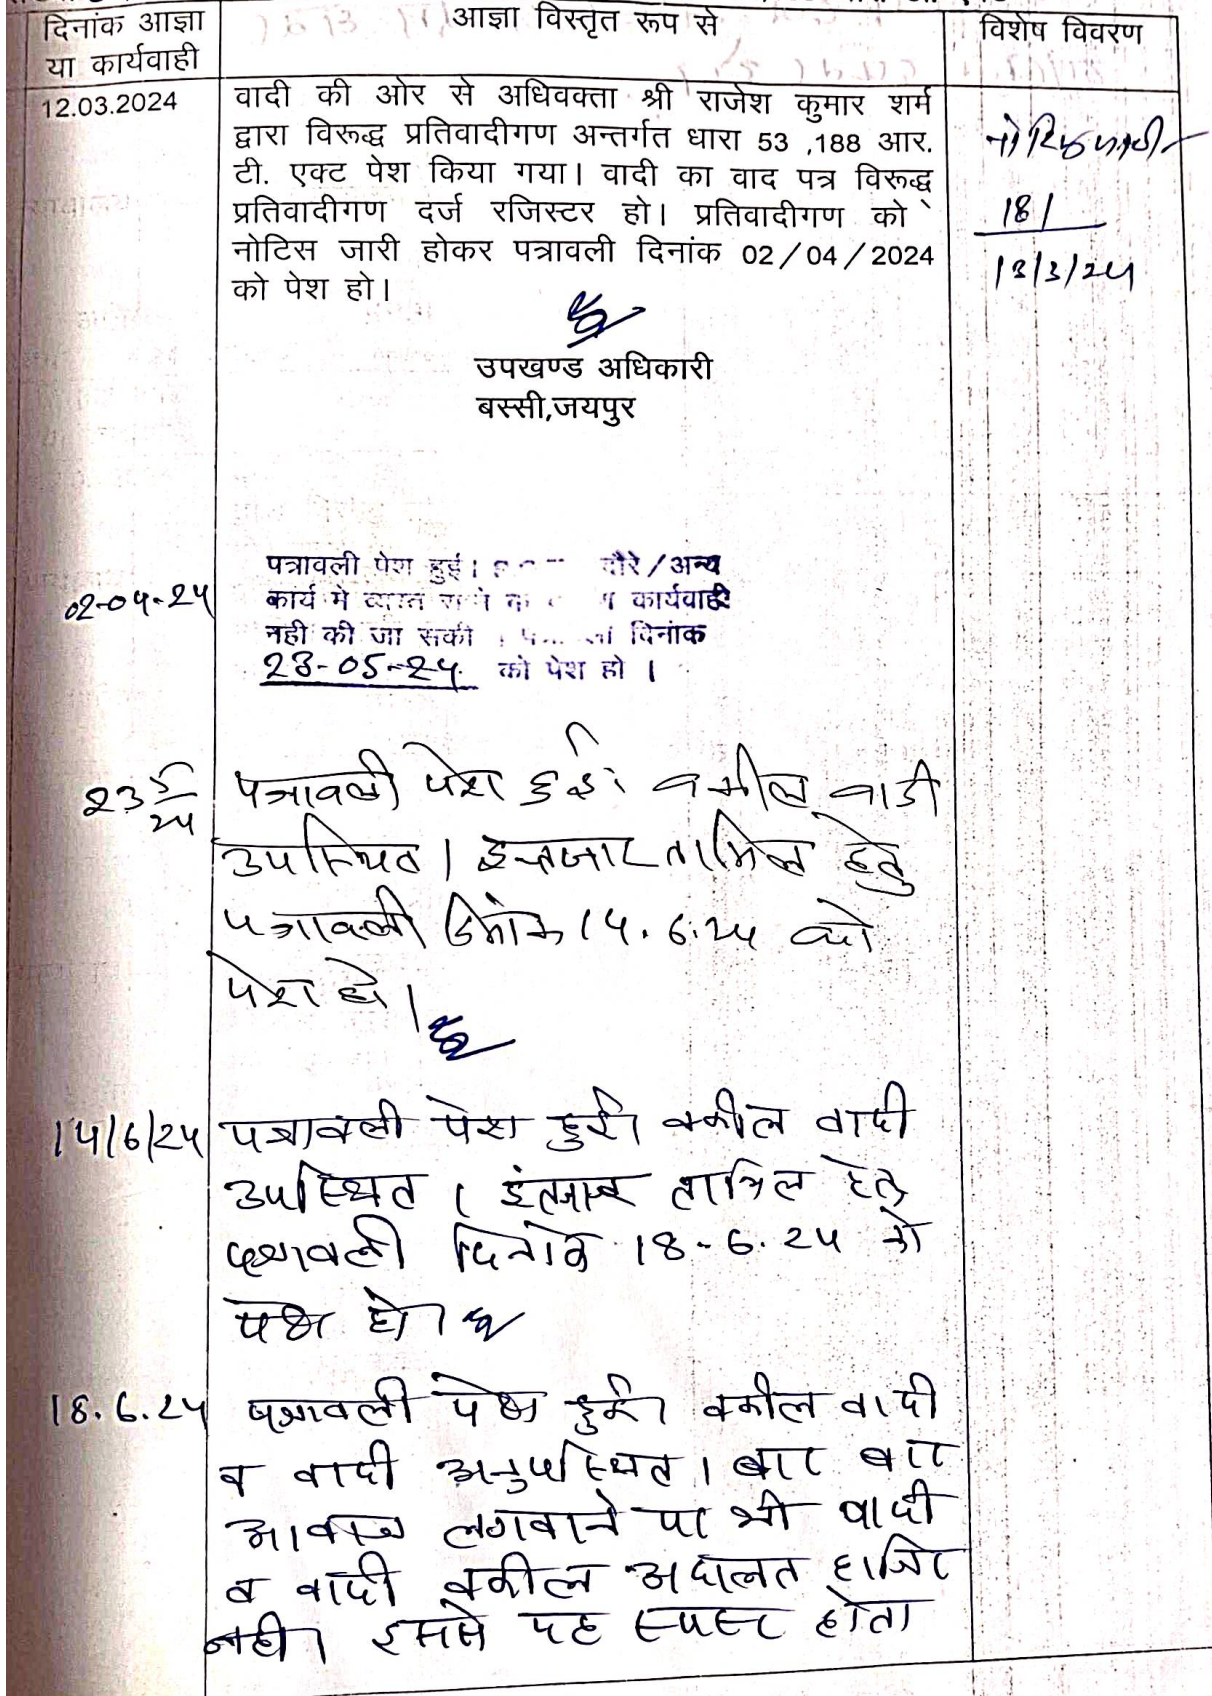 दिनांक आज्ञा
या कार्यवाही
आज्ञा विस्तृत रूप से
विशेष विवरण
12.03.2024
वादी की ओर से अधिवक्ता श्री राजेश कुमार शर्म
द्वारा विरूद्ध प्रतिवादीगण अन्तर्गत धारा 53 ,188 आर.
टी. एक्ट पेश किया गया। वादी का वाद पत्र विरूद्ध
प्रतिवादीगण दर्ज रजिस्टर हो। प्रतिवादीगण को
नोटिस जारी होकर पत्रावली दिनांक 02/04/2024
को पेश हो।
181
13/3/24
उपखण्ड अधिकारी
बस्सी,जयपुर
02-04-24
पत्रावली पेश हुई। दौरे/अन्य
कार्य मे व्यस्त कार्यवाही
नही की जा सकी । दिनांक
23-05-24 को पेश हो ।
23 5/24
पत्रावली पेश हुई। वकील वादी
उपस्थित। इन्तजार तामिल हेतु
पत्रावली दिनांक 14.6.24 को
पेश हो।
14/6/24
पत्रावली पेश हुई। वकील वादी
उपस्थित। इंतजार तामिल हेतु
पत्रावली दिनांक 18.6.24 को
पेश हो।
18.6.24
पत्रावली पेश हुई। वकील वादी
व वादी अनुपस्थित। बार बार
आवाज लगवाने पर भी वादी
व वादी वकील अदालत हाजिर
नही। इससे यह स्पस्ट होता